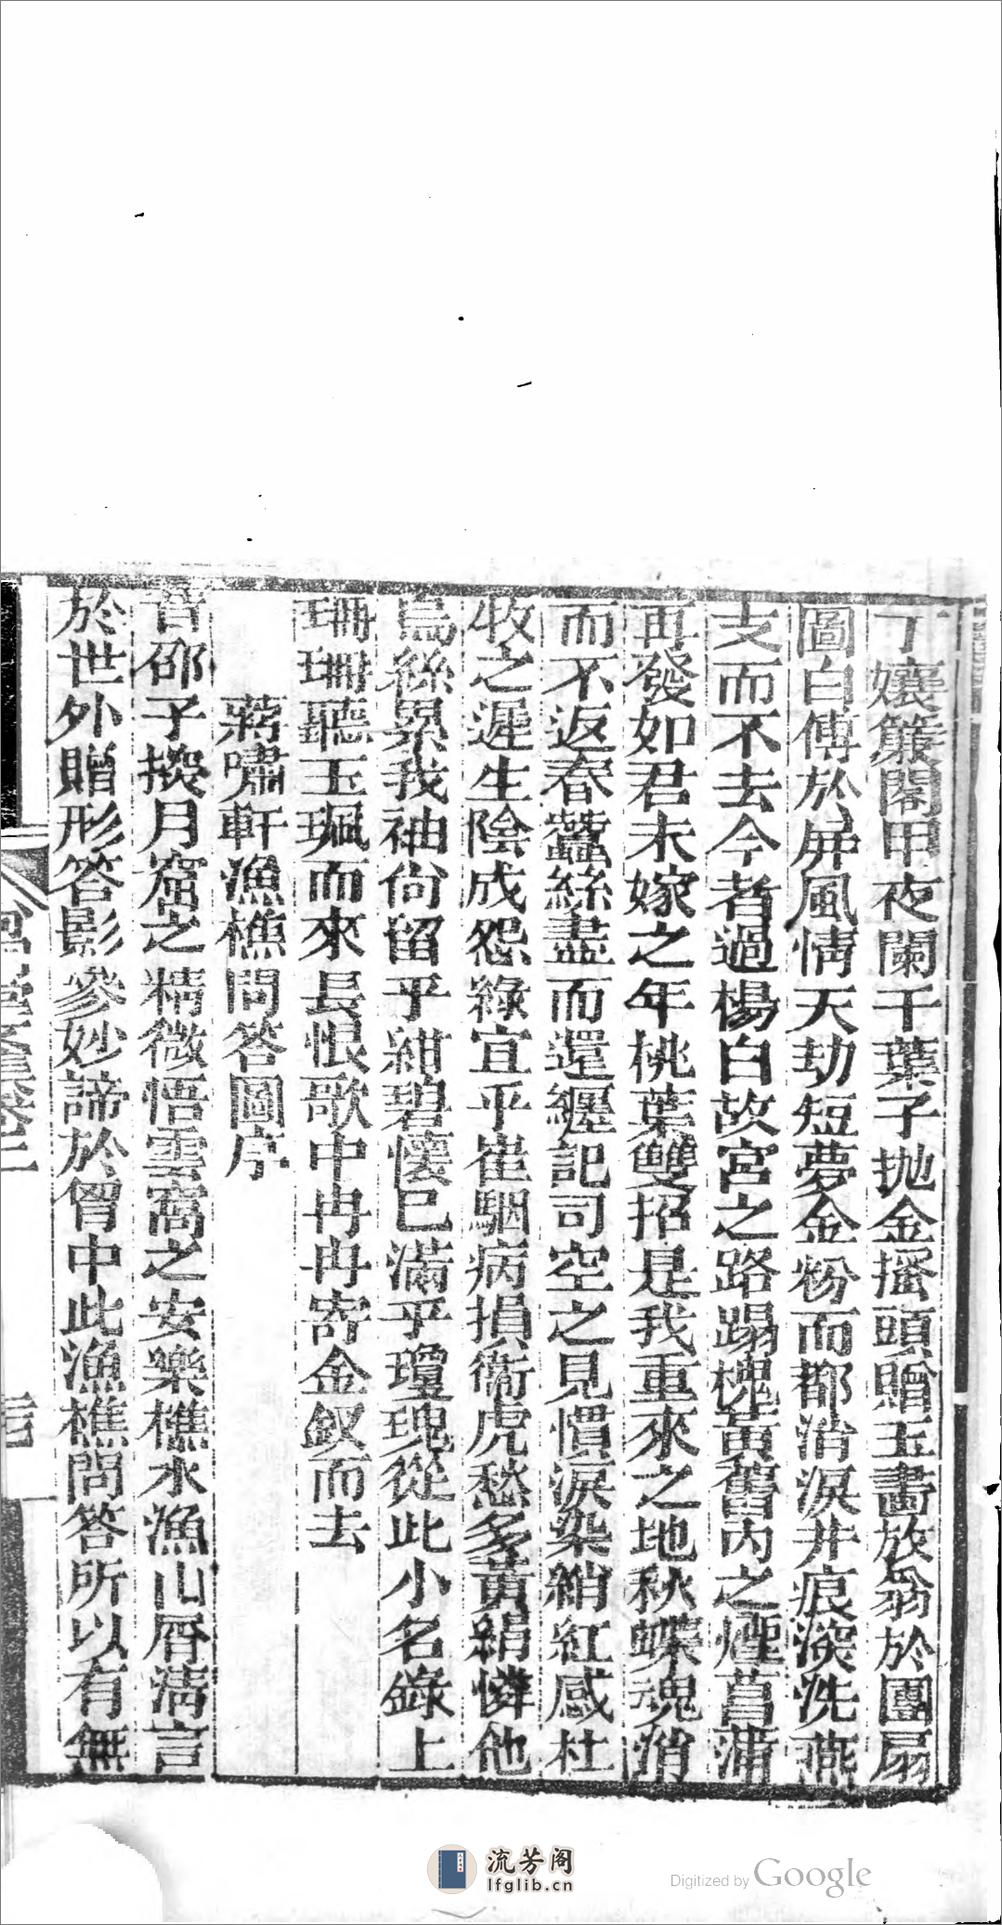 丁孃簾閣甲夜闌干葉子拋金搔頭贈玉畫放翁於團扇
圖白傅於屏風情天劫短夢金粉而都消淚井痕深洗燕
支而不去今者過楊白故宮之路蹋槐黃舊內之煙菖蒲
再發如君未嫁之年桃葉雙招是我重來之地秋蝶魂消
而不返春蠶絲盡而還纏記司空之見慣淚染綃紅感杜
牧之遲生陰成怨綠宜乎崔駰病損衞虎愁多黃絹憐他
烏絲累我袖尙留乎紺碧懷已滿乎瓊瑰從此小名錄上
珊珊聽玉珮而來長恨歌中冉冉寄金釵而去
蔣嘯軒漁樵問答圖序
昔邵子探月窟之精微悟雲窩之安樂樵水漁山屑淸言
於世外贈形答影參妙諦於胷中此漁樵問答所以有無
流芳阁
lfglib.cn
Digitized by Google